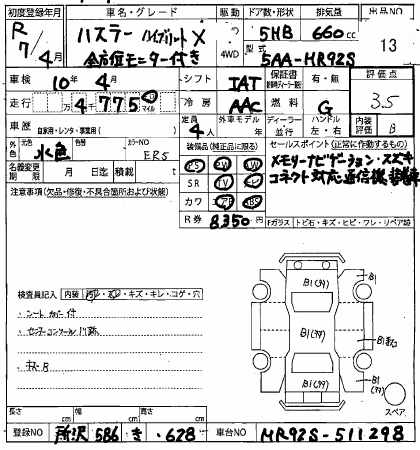 初度登録年月 車名・グレード 駆動 ドア数・形状 排気量 出品NO
R7/4月 ハスラー ハイブリット X 全方位モーター付き 4WD 5HB 660cc 13
型式 5AA-MR92S
車検 10年 4月 シフト IAT 保証書 有・無 評価点
走行 万4千775 マイル 冷房 AAC 燃料 G 3.5
車歴 自家用・レンタ・事業用( ) 定員 4人 外車モデル 年 ディーラー 並行 ハンドル 左・右 内装評価 B
外色 元色 水色 色替 カラーNO ERS 装備品(純正品に限る) セールスポイント(正常に作動するもの)
名義変更期限 月 日迄 積載 t PS PW SR TV カワ ABS
メモリーナビゲーション・スズキ
コネクト対応通信機
注意事項(欠品・修復・不具合箇所および状態)
R券 8,350円 Fガラス トビ石・キズ・ヒビ・ワレ・リペア跡
検査員記入 内装 汚レ・スレ・キズ・キレ・コゲ・穴
シートカバー付
B1
B1(タタ)
B1(タタ)
B1(タタ)
B1
B1(タタ)
スペア
長さ cm 幅 cm 高さ cm
登録NO 所沢 586 き ・628 車台NO MR92S-511298